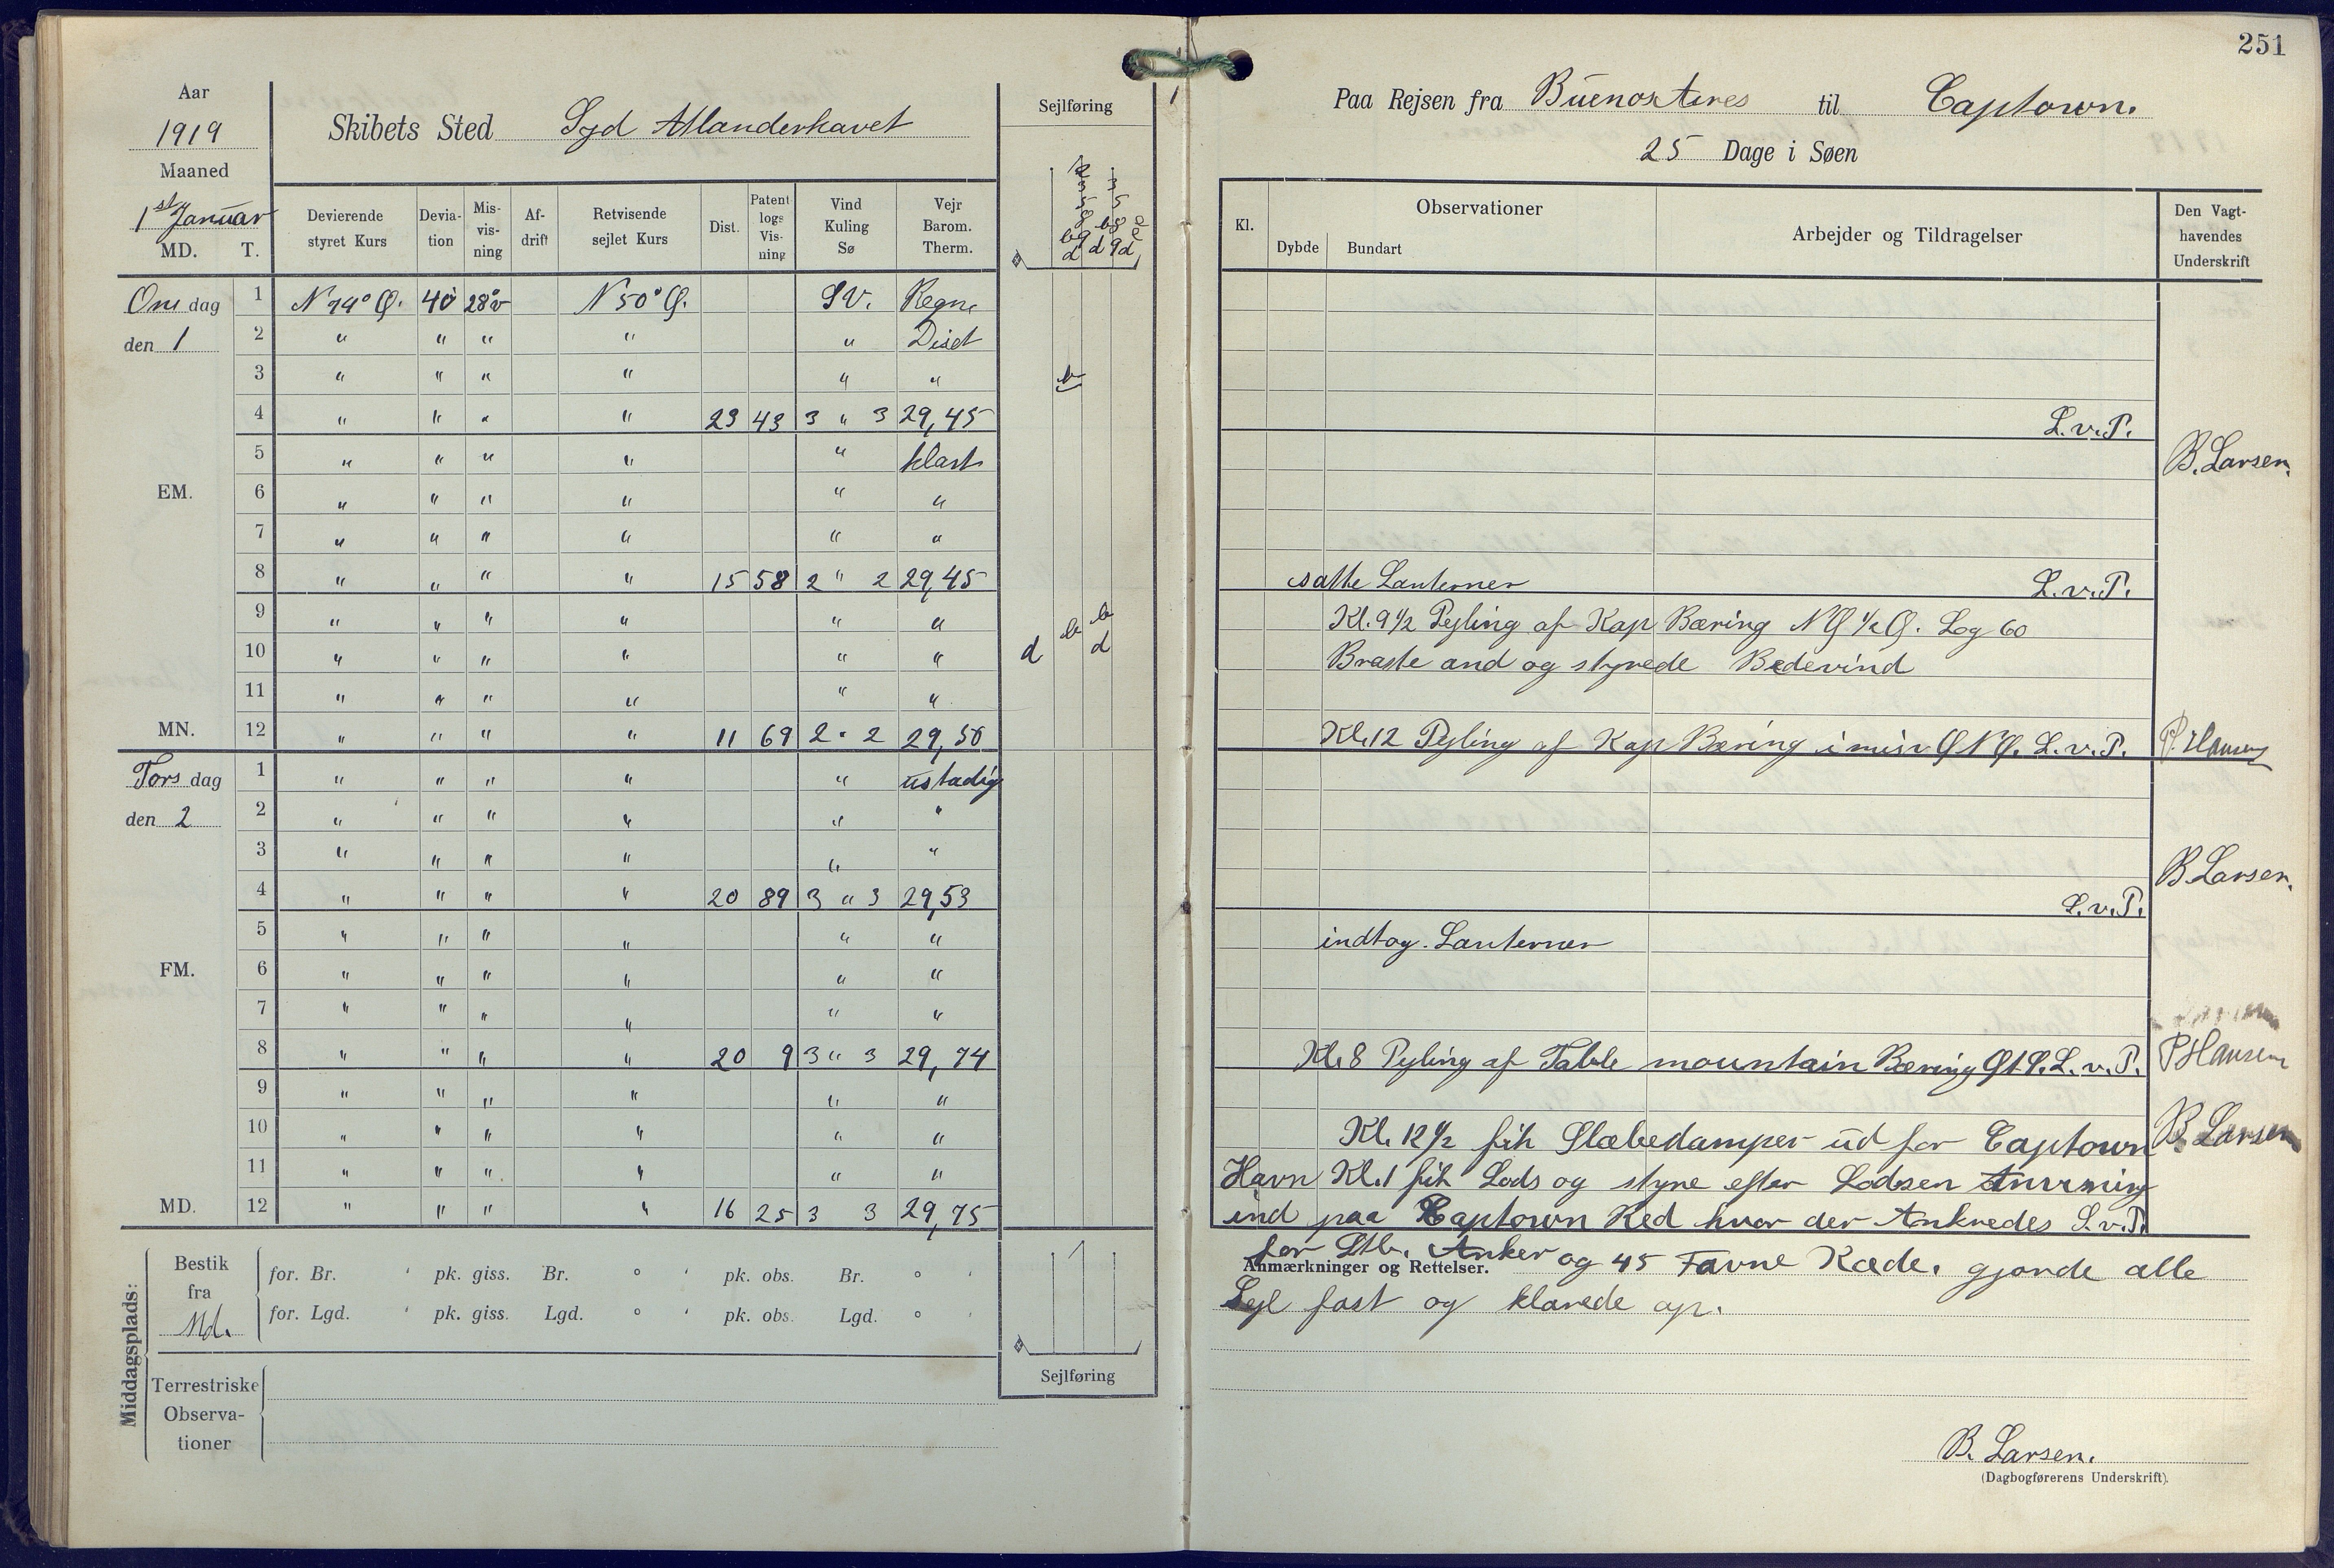 251
Aar
1919
Maaned
1st Januar
MD. T.
Skibets Sted Syd Atlanderhavet
Sejlføring
Paa Rejsen fra Buenos Aires til Captown.
25 Dage i Søen
Devierende styret Kurs | Devia-tion | Mis-vis-ning | Af-drift | Retvisende sejlet Kurs | Dist. | Patent logs Vis-ning | Vind Kuling Sø | Vejr Barom. Therm.
Kl. | Observationer | Dybde | Bundart | Arbejder og Tildragelser | Den Vagt-havendes Underskrift
Onsdag 1 N 74° Ø. 4° 28°v N 50° Ø. SV. Regn
den 1 2 " " " " " Diset
3 " " " " " "
4 " " " " 23 43 3 " 3 29,45 L.v.P.
5 " " " " " klart B. Larsen.
EM. 6 " " " " " "
7 " " " " " "
8 " " " " 15 58 2 " 2 29,45 satte Lanterner L.v.P.
9 " " " " " " Kl. 9 1/2 Pejling af Kap Bæring NØ 1/2 Ø. Log 60
10 " " " " " " Braste and og styrede Bedevind
11 " " " " " "
MN. 12 " " " " 11 69 2 " 2 29,50 Kl. 12 Pejling af Kap Bæring i misv ØNØ. L.v.P. P. Hansen
Torsdag 1 " " " " " ustadig
den 2 2 " " " " " "
3 " " " " " "
4 " " " " 20 89 3 " 3 29,53 L.v.P. B. Larsen.
5 " " " " " " indtog. Lanterner
FM. 6 " " " " " "
7 " " " " " "
8 " " " " 20 9 3 " 3 29,74 Kl. 8 Pejling af Table mountain Bæring L.v.P. P Hansen
9 " " " " " "
10 " " " " " " Kl. 12 1/2 fik Slæbedamper ud for Captown B. Larsen
11 " " " " " " Havn Kl. 1 fik Lods og styre efter Lodsen Anvisning
MD. 12 " " " " 16 25 3 3 29,75 ind paa Captown Red hvor der Ankredes L.v.P.
for Stb. Anker og 45 Favne Kæde. gjorde alle
Anmærkninger og Rettelser.
Sejl fast og klarede op.
Middagsplads:
Bestik fra Md.
for. Br. ' pk. giss. Br. ° ' pk. obs. Br. ° '
for. Lgd. ' pk. giss. Lgd. ° ' pk. obs. Lgd. ° '
Sejlføring
Terrestriske
Observa-
tioner
B. Larsen.
(Dagbogførerens Underskrift).